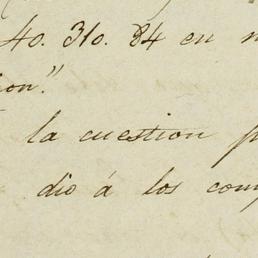 40. 310. 84 en
ion."
la cuestion
dio á los